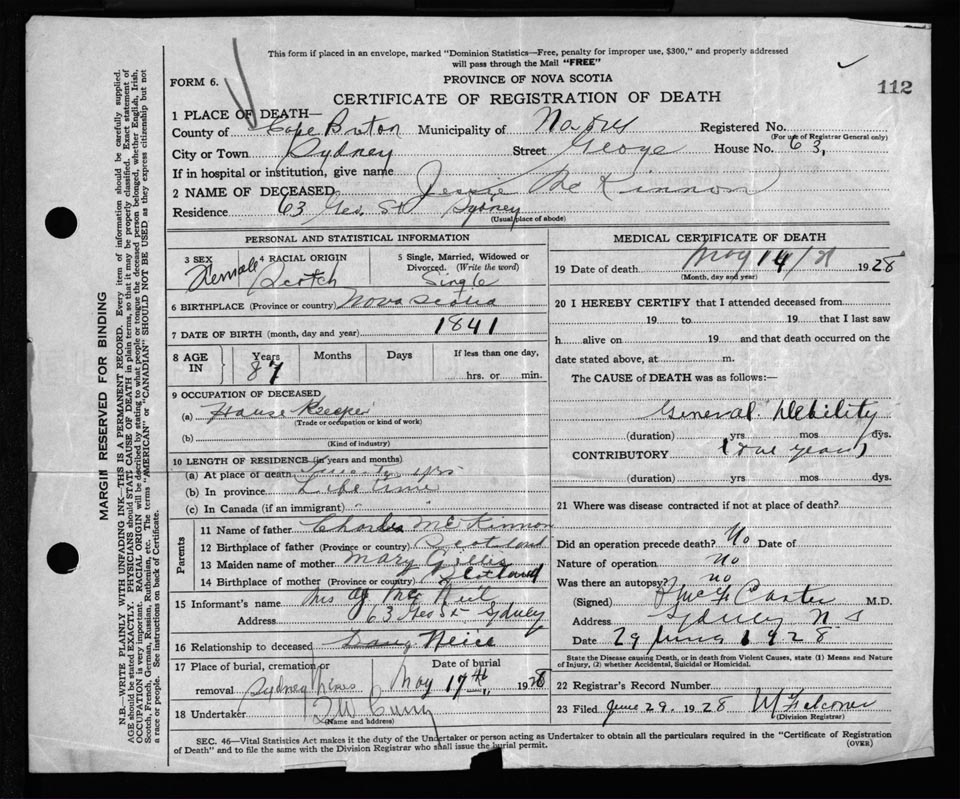 This form if placed in an envelope, marked "Dominion Statistics—Free, penalty for improper use, $300," and properly addressed
will pass through the Mail "FREE"
FORM 6.
PROVINCE OF NOVA SCOTIA
112
CERTIFICATE OF REGISTRATION OF DEATH
1 PLACE OF DEATH—
County of Cape Breton Municipality of Registered No.
(For use of Registrar General only)
City or Town Sydney Street George House No. 63,
If in hospital or institution, give name
2 NAME OF DECEASED Jessie McKinnon
Residence 63 Geo. St Sydney
(Usual place of abode)
PERSONAL AND STATISTICAL INFORMATION
3 SEX Female
4 RACIAL ORIGIN Scotch
5 Single, Married, Widowed or Divorced. (Write the word) Single
6 BIRTHPLACE (Province or country) Nova Scotia
7 DATE OF BIRTH (month, day and year) 1841
8 AGE IN Years Months Days If less than one day,
87 hrs. or min.
9 OCCUPATION OF DECEASED
(a) House Keeper
(Trade or occupation or kind of work)
(b)
(Kind of industry)
10 LENGTH OF RESIDENCE (in years and months)
(a) At place of death yrs
(b) In province Life time
(c) In Canada (if an immigrant)
Parents
11 Name of father Charles McKinnon
12 Birthplace of father (Province or country) Scotland
13 Maiden name of mother Mary Gillis
14 Birthplace of mother (Province or country) Scotland
15 Informant's name Mrs McNeil
Address 63 Geo St Sydney
16 Relationship to deceased Neice
17 Place of burial, cremation or Date of burial
removal Sydney Mines May 17th, 1928
18 Undertaker
(Name and address)
MEDICAL CERTIFICATE OF DEATH
19 Date of death May 14 1928
(Month, day and year)
20 I HEREBY CERTIFY that I attended deceased from
19 to 19 that I last saw
h alive on 19 and that death occurred on the
date stated above, at m.
The CAUSE of DEATH was as follows:—
General Debility
(duration) yrs mos dys.
CONTRIBUTORY (one year)
(duration) yrs mos dys.
21 Where was disease contracted if not at place of death?
Did an operation precede death? No Date of
Nature of operation no
Was there an autopsy? no
(Signed) M.D.
Address Sydney N S
Date 29 June 1928
State the Disease causing Death, or in death from Violent Causes, state (1) Means and Nature
of Injury, (2) whether Accidental, Suicidal or Homicidal.
22 Registrar's Record Number
23 Filed June 29. 1928 W Falconer
(Division Registrar)
SEC. 46—Vital Statistics Act makes it the duty of the Undertaker or person acting as Undertaker to obtain all the particulars required in the "Certificate of Registration
of Death" and to file the same with the Division Registrar who shall issue the burial permit.
(OVER)
MARGIN RESERVED FOR BINDING
N.B.—WRITE PLAINLY WITH UNFADING INK—THIS IS A PERMANENT RECORD. Every item of information should be carefully supplied.
AGE should be stated EXACTLY. PHYSICIANS should STATE CAUSE OF DEATH in plain terms, so that it may be properly classified. Exact statement of
OCCUPATION is very important. RACIAL ORIGIN will be described by stating to what people or tongue the deceased person belonged, whether English, Irish,
Scotch, French, German, Russian, Ruthenian, etc. The terms "AMERICAN" or "CANADIAN" SHOULD NOT BE USED as they express citizenship but not
a race or people. See instructions on back of Certificate.